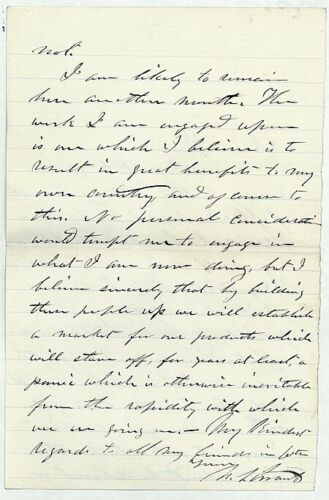 not.
I am likely to remain
here another month. The
work I am engaged upon
is one which I believe is to
result in great benefits to my
own country, and of course to
this. No personal consideration
would tempt me to engage in
what I am now doing, but I
believe sincerely that by building
these people up we will establish
a market for our products which
will stave off, for years at least, a
panic which is otherwise inevitable
from the rapidity with which
we are going on. - My kindest
regards to all my friends in
Yours
U. S. Grant